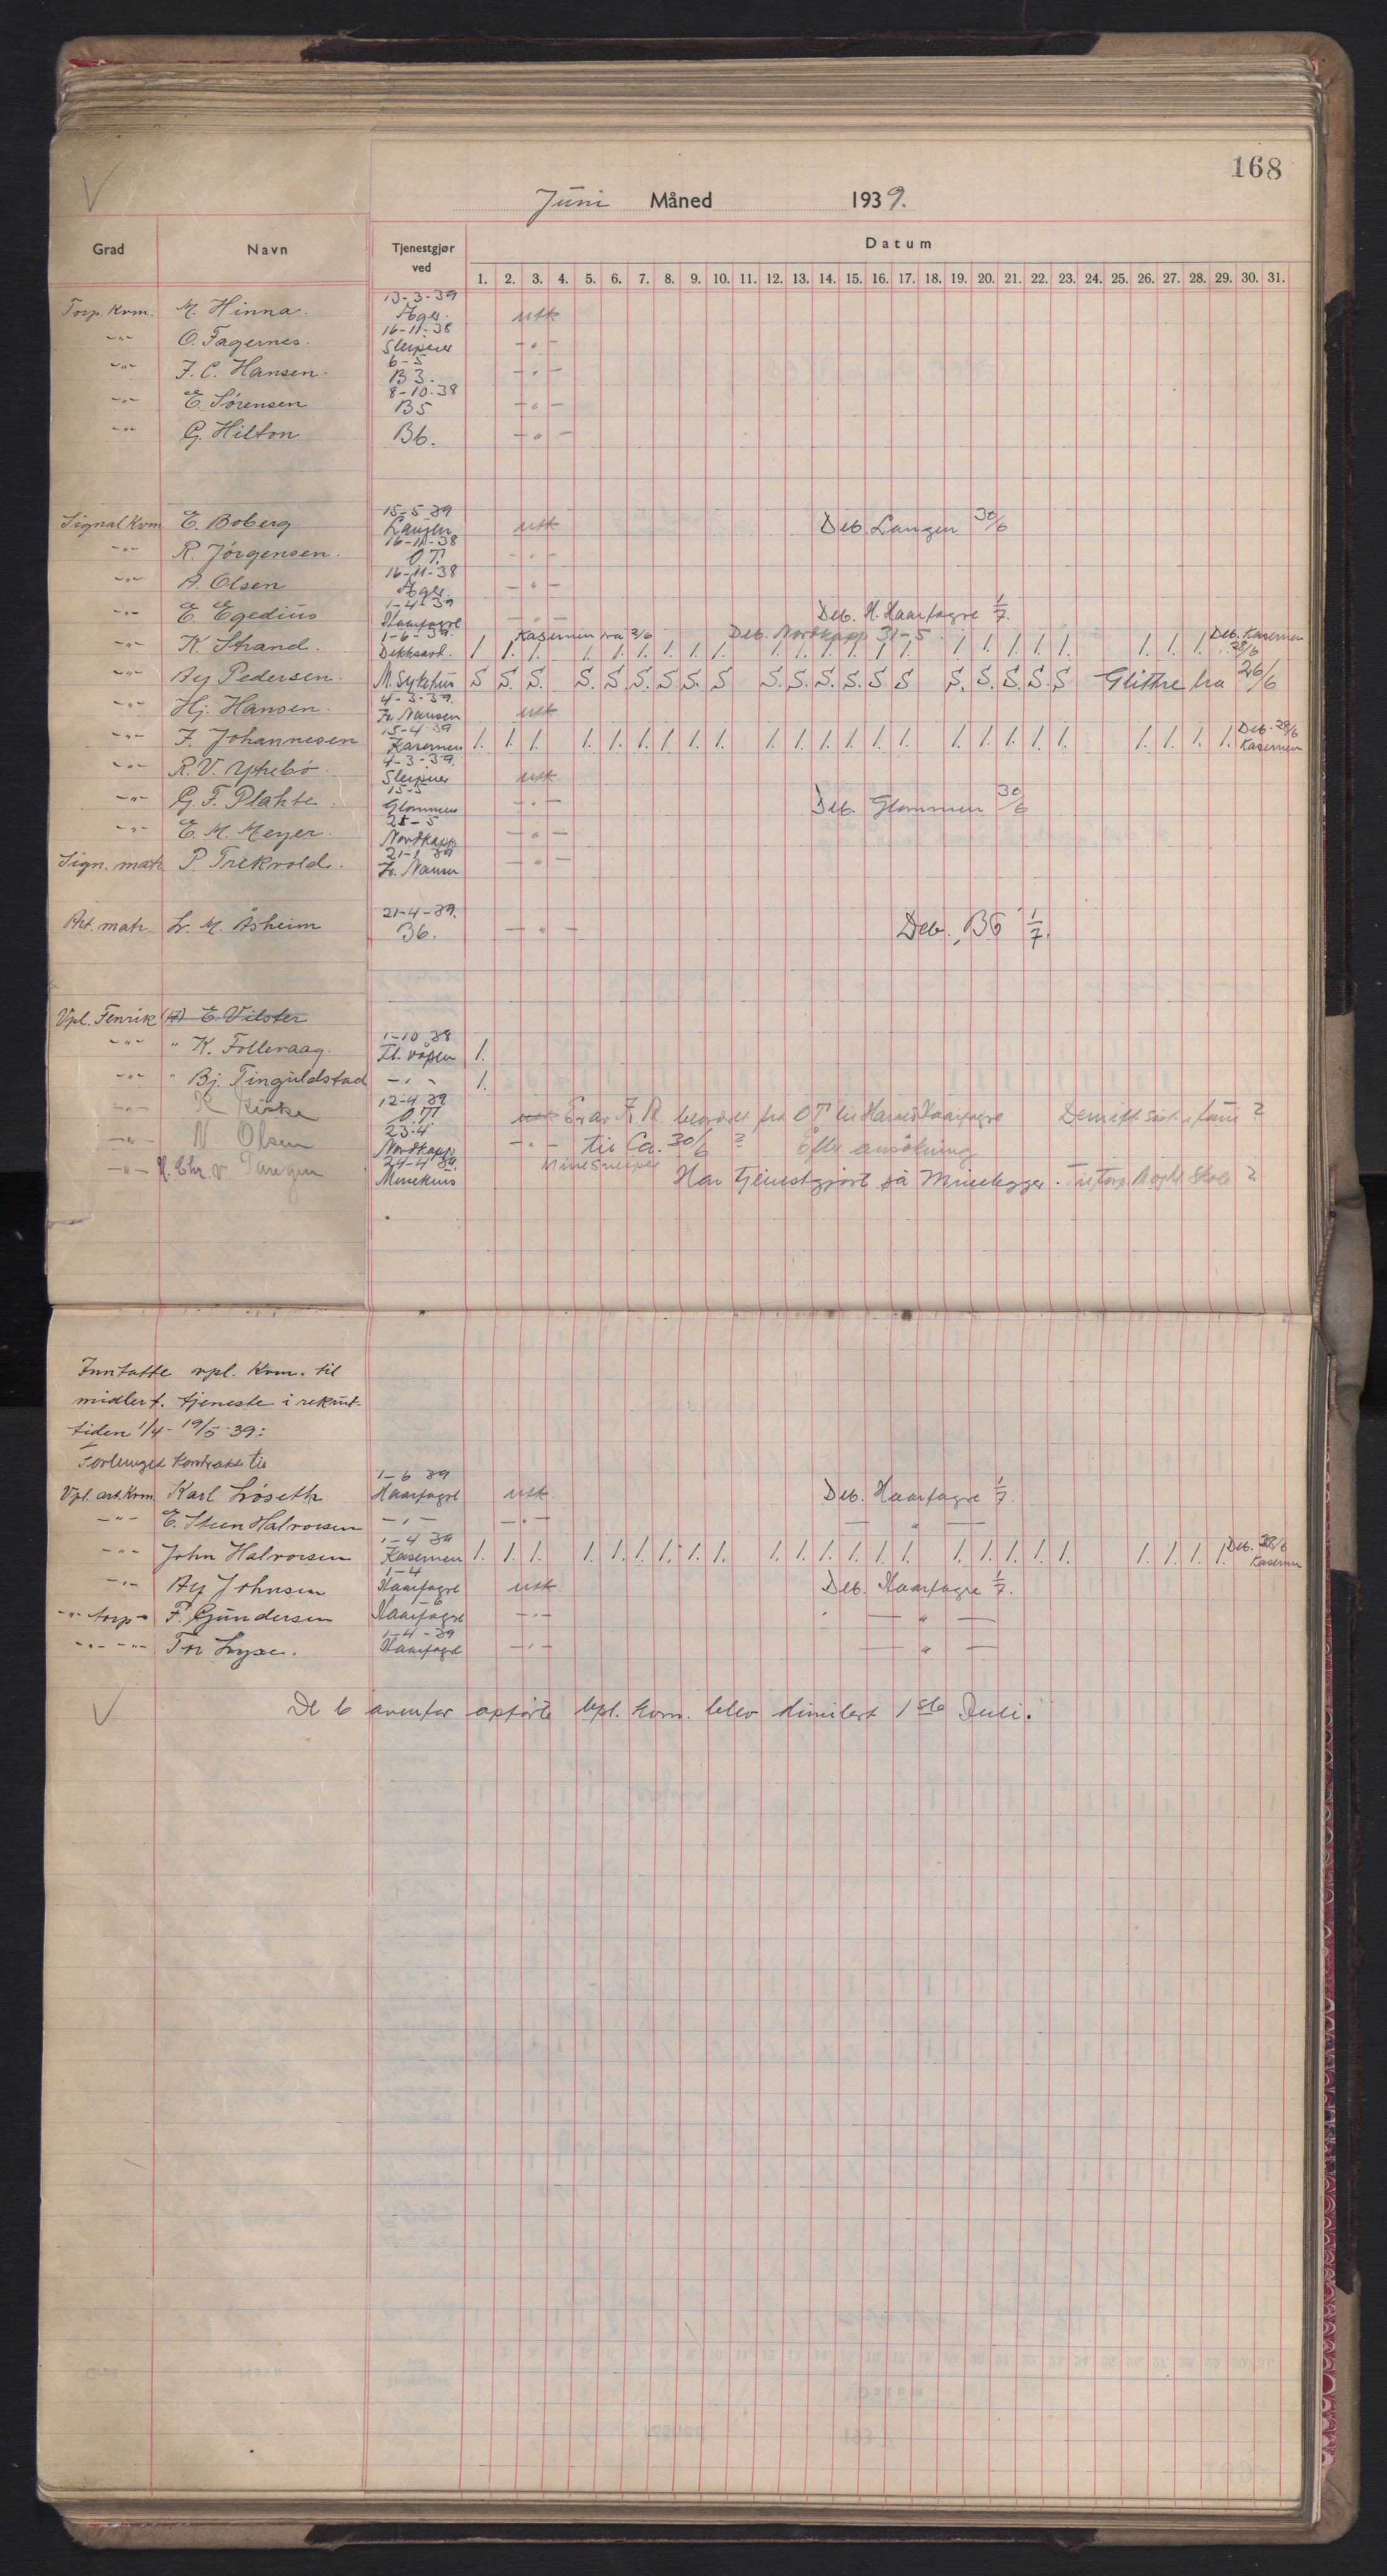 168
Juni Måned 1939.
Grad Navn Tjenestgjør ved Datum
1. 2. 3. 4. 5. 6. 7. 8. 9. 10. 11. 12. 13. 14. 15. 16. 17. 18. 19. 20. 21. 22. 23. 24. 25. 26. 27. 28. 29. 30. 31.
13-3-39
Torp. Kvm. M. Hinna. Æger. utk
16-11-38
-"- O. Fagernes. Sleipner -"-
6-5
-"- J. C. Hansen. B3. -"-
8-10-38
-"- E. Sørensen B5 -"-
-"- G. Hilton B6. -"-
15-5-39
Signal Kvm E. Boberg Laugen utk Deb. Laugen 30/6
16-11-38
-"- R. Jørgensen. O.T. -"-
16-11-38
-"- A. Olsen Æger. -"-
1-4-39
-"- E. Egedius Haarfagre -"- Deb. H. Haarfagre 1/7.
1-6-39. Kasernen fra 3/6 Deb. Nordkapp 31-5 Deb. Kasernen
-"- K. Strand. Dekksavd. 1 1. 1. 1. 1. 1. 1. 1. 1. 1. 1. 1. 1. 1. 1. 1. 1. 1. 1. 1. 1. 1. 1. 28/6
-"- Alf Pedersen. M. Sykehus S S. S. S. S. S. S. S. S S. S. S. S. S S S. S. S. S. S Glittre fra 26/6
4-3-39.
-"- Hj. Hansen. Fr. Nansen utk
15-4-39 Deb. 28/6
-"- F. Johannesen Kasernen 1. 1. 1 1. 1. 1. 1. 1. 1. 1. 1. 1. 1. 1. 1. 1. 1. 1. 1. 1. 1. 1. 1. 1. Kasernen
4-3-39.
-"- R. V. Ytrebö. Sleipner utk
15-5
-"- G. F. Plahte. Glommen -"- Deb. Glommen 30/6
25-5
-"- E. M. Meyer. Nordkapp -"-
21-1 39
Sign. matr. P Trekvold. Fr. Nansen -"-
21-4-39.
Art. matr. L. M. Åsheim B6. -"- Deb. B6 1/7.
Vpl. Fenrik E. Vilster
1-10 38
-"- " K. Folleraag. Tl. våpen 1.
-"- " Bj. Tinguldstad -"- 1.
12-4 39
-"- K Kiske O.T. utk Er av F. R. beordret fra OT til Harald Haarfagre
23-4
-"- N Olsen Nordkapp -"- til Ca. 30/6 ? Efter ansökning
24-4 39 Minesveiper
-"- H. Chr. v Tangen Minekurs Har tjenestgjort på Minelegger.
Inntatte vpl. Kvm. til
midlert. tjeneste i rekrut-
tiden 1/4 - 19/5-39:
Forlenget kontrakt til
1-6 39
Vpl. art. Kvm Karl Løseth Haarfagre utk. Deb. Haarfagre 1/7.
-"- E. Steen Halvorsen -"- -"- -"-
1-4 39 Deb. 28/6
-"- John Halvorsen Kasernen 1. 1. 1. 1. 1. 1. 1. 1. 1. 1. 1. 1. 1. 1. 1. 1. 1. 1. 1. 1. 1. 1. 1. 1. 1. Kasernen
1-4
-"- Alf Johnsen Haarfagre utk Deb. Haarfagre 1/7.
-"- torp - F. Gundersen Haarfagre -"- -"-
1-4-39
-"- -"- Tor Lyse. Haarfagre -"- -"-
De 6 ovenfor opförte vpl. kvm. blev dimitert 1ste Juli.